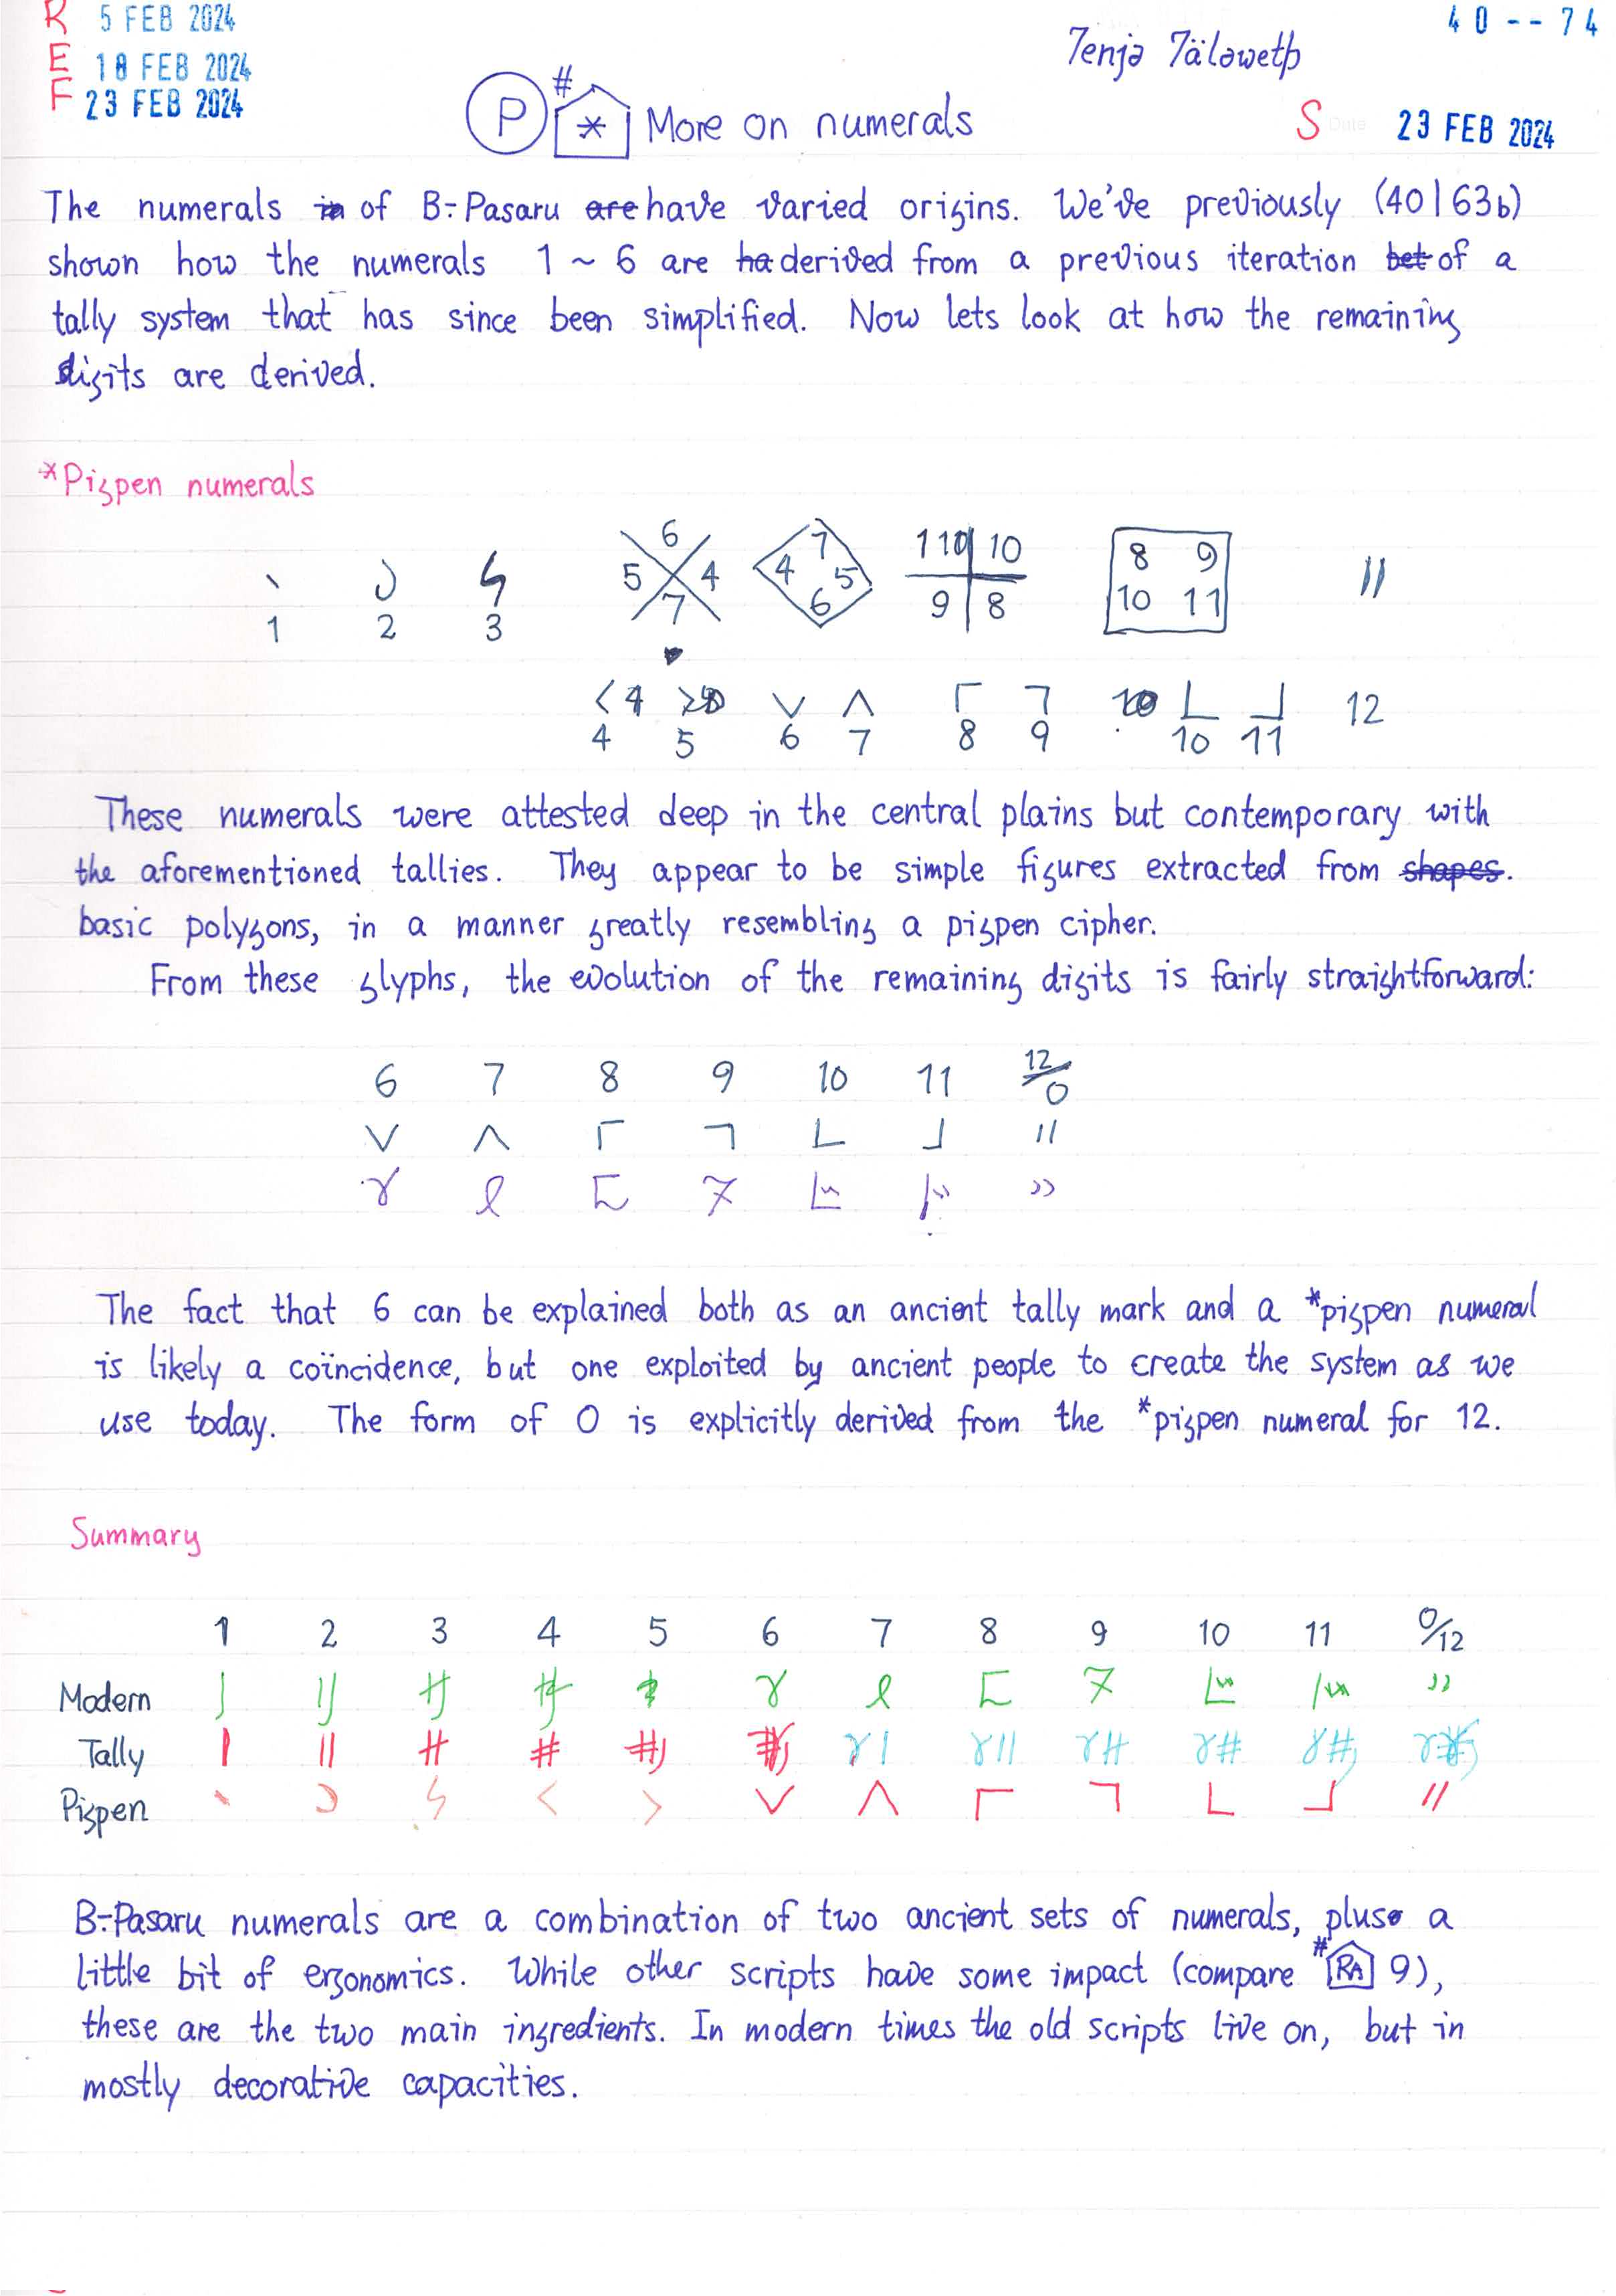 R 5 FEB 2024
E 18 FEB 2024
F 23 FEB 2024
40--74
Tenja Tälaweth
P # * More on numerals
S Date 23 FEB 2024
The numerals in of B:-Pasaru are have varied origins. We've previously (40|63b)
shown how the numerals 1 ~ 6 are ha derived from a previous iteration bet of a
tally system that has since been simplified. Now lets look at how the remaining
digits are derived.
*Pigpen numerals
6 7 1 10 10 8 9
5 4 4 5
7 6 9 8 10 11 //
1 2 3
< > ∨ ∧ Γ ㄱ L ┘ 12
4 5 6 7 8 9 10 11
These numerals were attested deep in the central plains but contemporary with
the aforementioned tallies. They appear to be simple figures extracted from shapes.
basic polygons, in a manner greatly resembling a pigpen cipher.
From these glyphs, the evolution of the remaining digits is fairly straightforward:
6 7 8 9 10 11 12/0
The fact that 6 can be explained both as an ancient tally mark and a *pigpen numeral
is likely a coïncidence, but one exploited by ancient people to create the system as we
use today. The form of 0 is explicitly derived from the *pigpen numeral for 12.
Summary
1 2 3 4 5 6 7 8 9 10 11 0/12
Modern
Tally
Pigpen
B:-Pasaru numerals are a combination of two ancient sets of numerals, plus a
little bit of ergonomics. While other scripts have some impact (compare # RA 9),
these are the two main ingredients. In modern times the old scripts live on, but in
mostly decorative capacities.